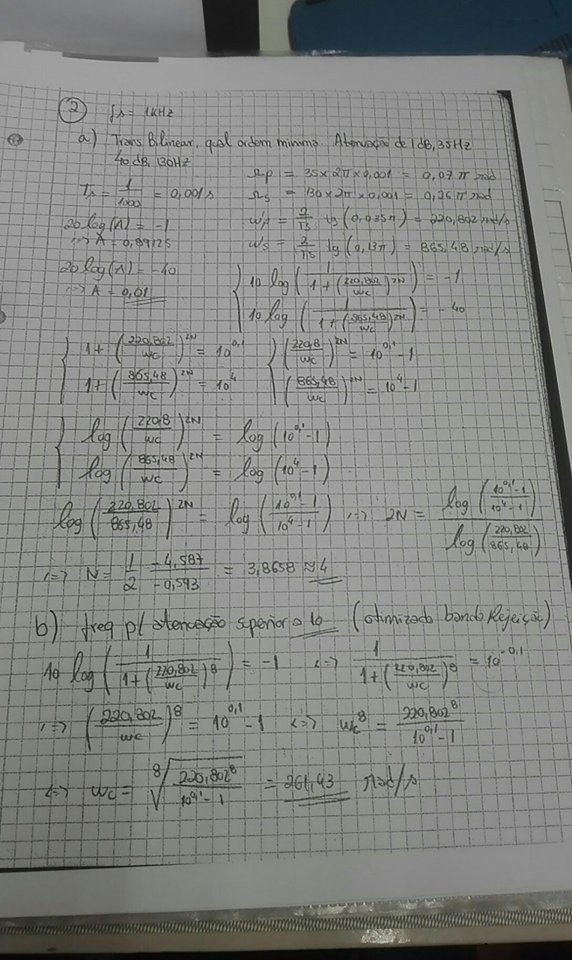 ② fs = 1KHz
a) Trans Bilinear, qual ordem minima. Atenuação de 1dB, 35Hz
40dB, 130Hz
Ωp = 35×2π×0,001 = 0,07π rad
Ts = 1/1000 = 0,001s
Ωs = 130×2π×0,001 = 0,26π rad
20log(A) = -1
wp = 2/Ts tg(0,035π) = 220,802 rad/s
⇔ A = 0,89125
ws = 2/Ts tg(0,13π) = 865,48 rad/s
20log(A) = -40
⇔ A = 0,01
{ 10 log(1/(1+(220,802/wc)^2N)) = -1
10 log(1/(1+(865,48/wc)^2N)) = -40
{ 1+(220,802/wc)^2N = 10^0,1 { (220,8/wc)^2N = 10^0,1 - 1
1+(865,48/wc)^2N = 10^4 (865,48/wc)^2N = 10^4 - 1
{ log(220,8/wc)^2N = log(10^0,1 - 1)
log(865,48/wc)^2N = log(10^4 - 1)
log(220,802/865,48)^2N = log((10^0,1 - 1)/(10^4 - 1)) ⇔ 2N = log((10^0,1 - 1)/(10^4 - 1))/log(220,802/865,48)
⇔ N = 1/2 -4,587/-0,593 = 3,8658 ≈ 4
b) freq p/ atenuação superior a 10 (otimizado banda Rejeição)
10 log(1/(1+(220,802/wc)^8)) = -1 ⇔ 1/(1+(220,802/wc)^8) = 10^-0,1
⇔ (220,802/wc)^8 = 10^0,1 - 1 ⇔ wc^8 = 220,802^8/(10^0,1 - 1)
⇔ wc = ⁸√(220,802^8/(10^0,1 - 1)) = 261,43 rad/s